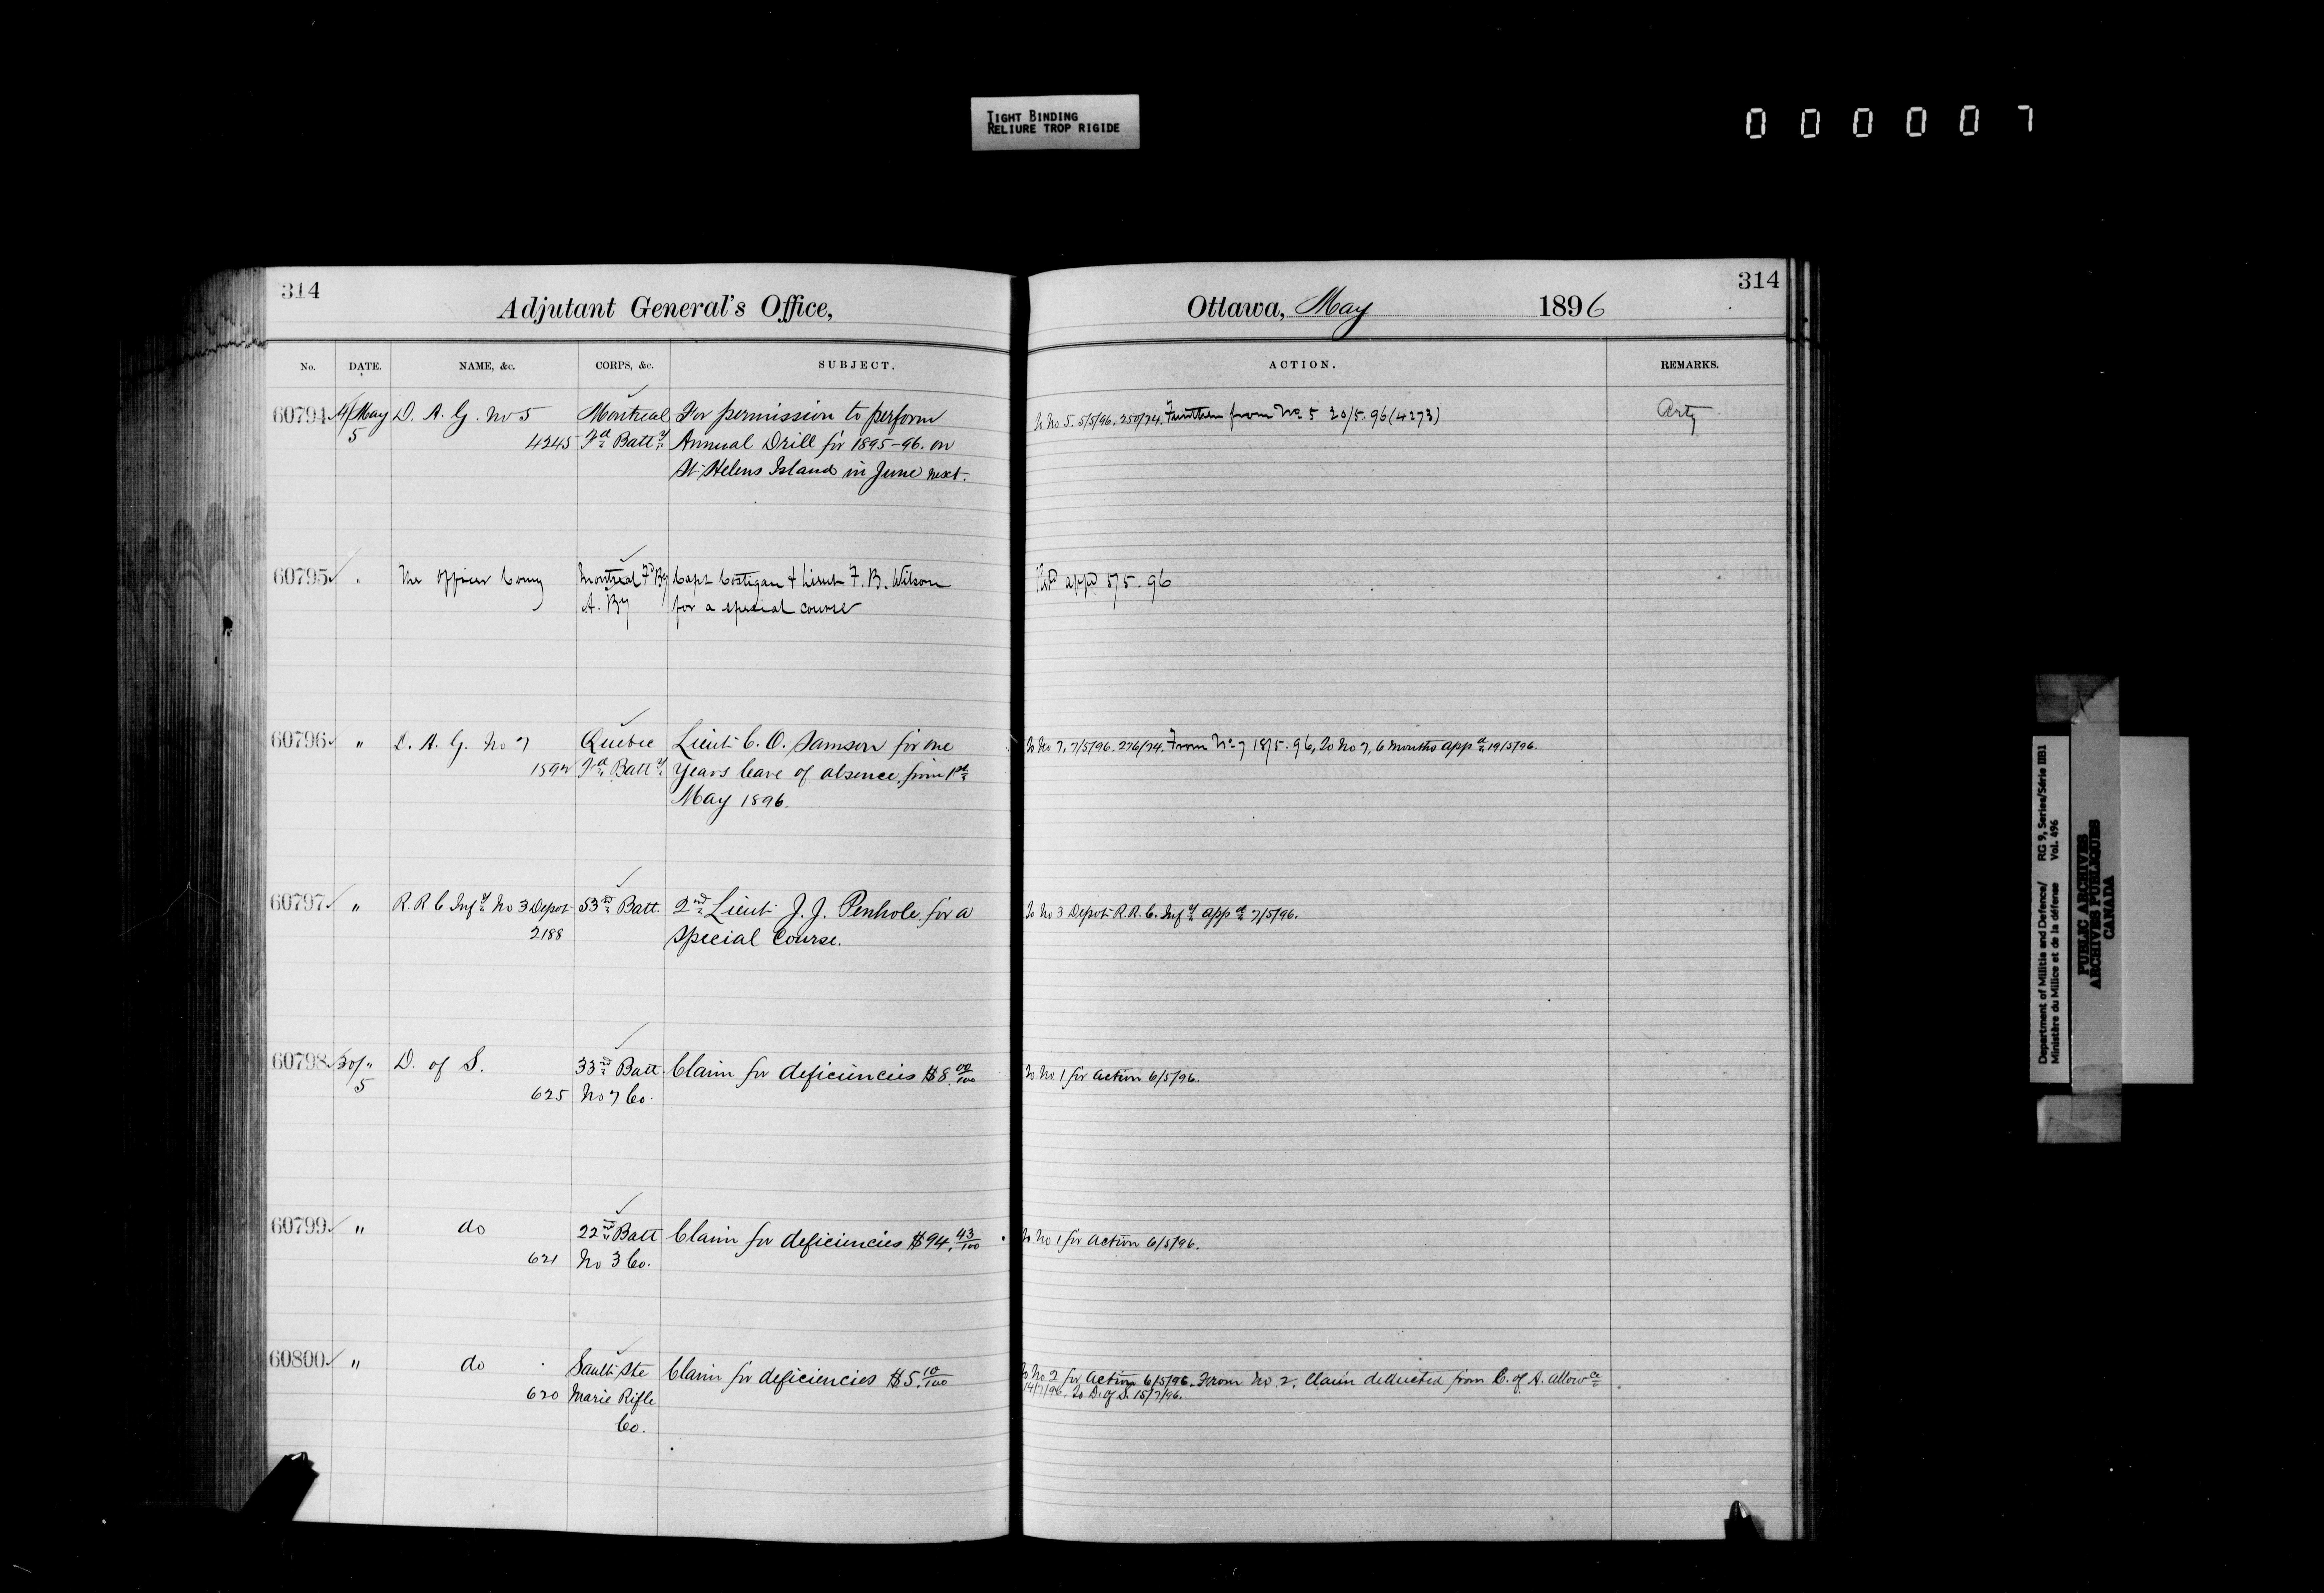 TIGHT BINDING
RELIURE TROP RIGIDE
000007
314
Adjutant General's Office,
No. DATE. NAME, &c. CORPS, &c. SUBJECT.
60794 4/May D. A. G. No 5 Montreal For permission to perform
5 4245 Fd Batty Annual Drill for 1895-96. on
St. Helens Island in June next.
60795 " The Officer Comg Montreal Fd By Capt Costigan & Lieut F. B. Wilson
A. By for a special course
60796 " D. A. G. No 7 Quebec Lieut C. O. Samson for one
Fd Batty Years leave of absence from 1st
May 1896.
60797 " R. R C Infy No 3 Depot 53rd Batt. 2nd Lieut J. J. Penhole for a
2188 special Course.
60798 D. of S. 33rd Batt. Claim for deficiencies $8.00/100
5 625 No 7 Co.
60799 " do 22nd Batt Claim for deficiencies $94.43/100
621 No 3 Co.
60800 " do Sault Ste Claim for deficiencies $5.10/100
620 Marie Rifle
Co.
314
Ottawa, May 1896
ACTION. REMARKS.
To No 5. 5/5/96. 250/74. Further from No 5 20/5.96 (4273) Arty
appd 5/5.96
To No 7, 7/5/96. 276/74. From No 7 18/5.96, To No 7, 6 months appd 19/5/96.
To No 3 Depot R.R.C. Infy appd 7/5/96.
To No 1 for action 6/5/96.
To No 1 for action 6/5/96.
To No 2 for action 6/5/96. From No 2. Claim deducted from C. of A. allowce
14/7/96. To D. of S. 15/7/96.
Department of Militia and Defence/ RG 9, Series/Série IIB1
Ministère du Milice et de la défense Vol. 496
PUBLIC ARCHIVES
ARCHIVES PUBLIQUES
CANADA